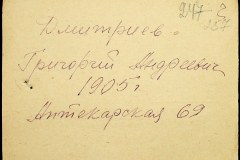 Дмитриев.
Григорий Андреевич
1905 г
Аптекарская 69